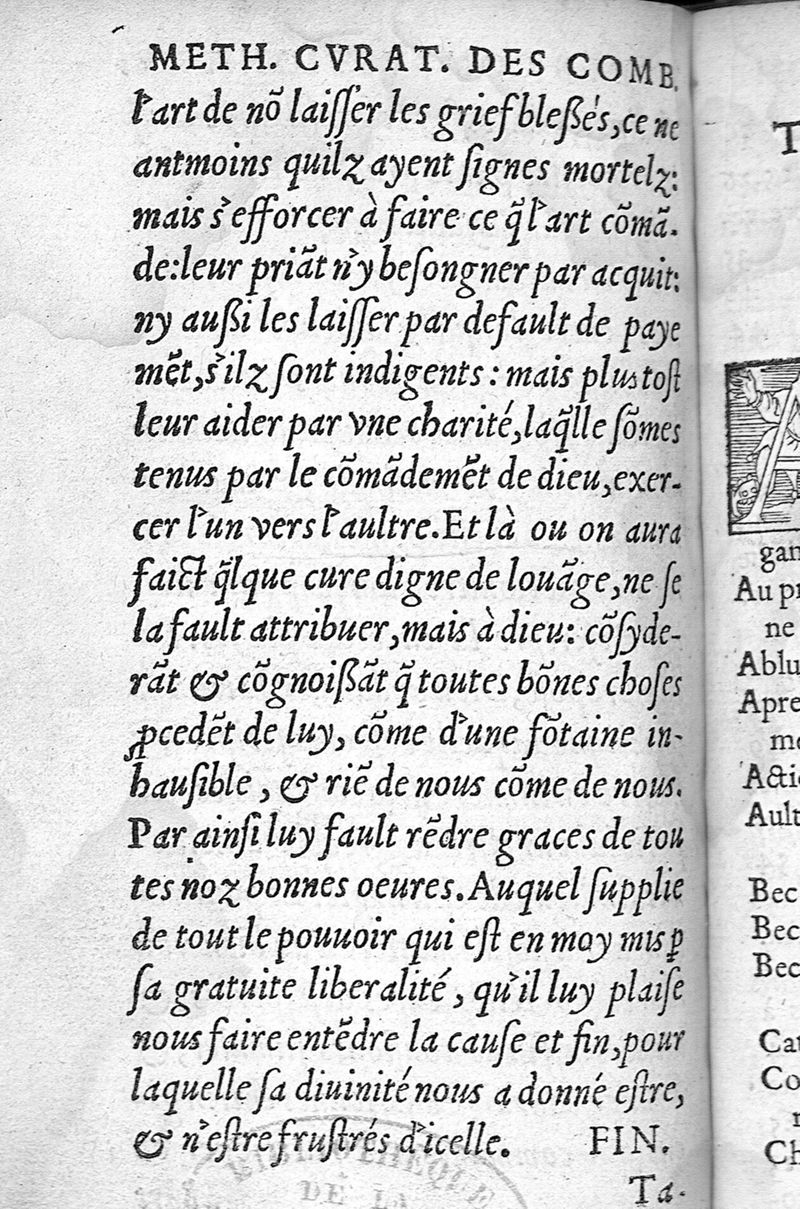 METH. CVRAT. DES COMB.
l'art de nõ laiſſer les grief bleßés, ce ne
antmoins quilz ayent ſignes mortelz:
mais s'efforcer à faire ce q̃ l'art cõmã-
de: leur priãt n'y beſongner par acquit:
ny außi les laiſſer par default de paye
mẽt, s'ilz ſont indigents: mais plus toſt
leur aider par vne charité, laq̃lle ſõmes
tenus par le cõmãdemẽt de dieu, exer-
cer l'un vers l'aultre. Et là ou on aura
faict q̃lque cure digne de louãge, ne ſe
la fault attribuer, mais à dieu: cõſyde-
rãt & cõgnoißãt q̃ toutes bõnes choſes
ꝓcedẽt de luy, cõme d'une fõtaine in-
hauſible, & riẽ de nous cõme de nous.
Par ainſi luy fault rẽdre graces de tou
tes noz bonnes oeures. Auquel ſupplie
de tout le pouuoir qui eſt en moy mis ꝑ
ſa gratuite liberalité, qu'il luy plaiſe
nous faire entẽdre la cauſe et fin, pour
laquelle ſa diuinité nous a donné eſtre,
& n'eſtre fruſtrés d'icelle. FIN.
Ta-
BIBLIOTHEQUE
DE LA
T
gan
Au pr
ne
Ablu
Apre
me
Actio
Ault
Bec
Bec
Bec
Cau
Co
Ch